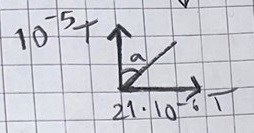 10⁻⁵ T
a
21·10⁻⁶ T